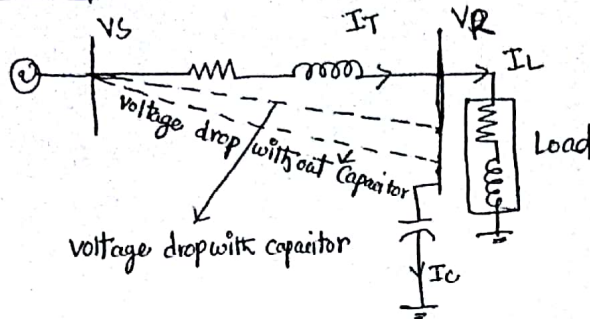 VS
IT
VR
IL
Load
voltage drop without capacitor
voltage drop with capacitor
Ic